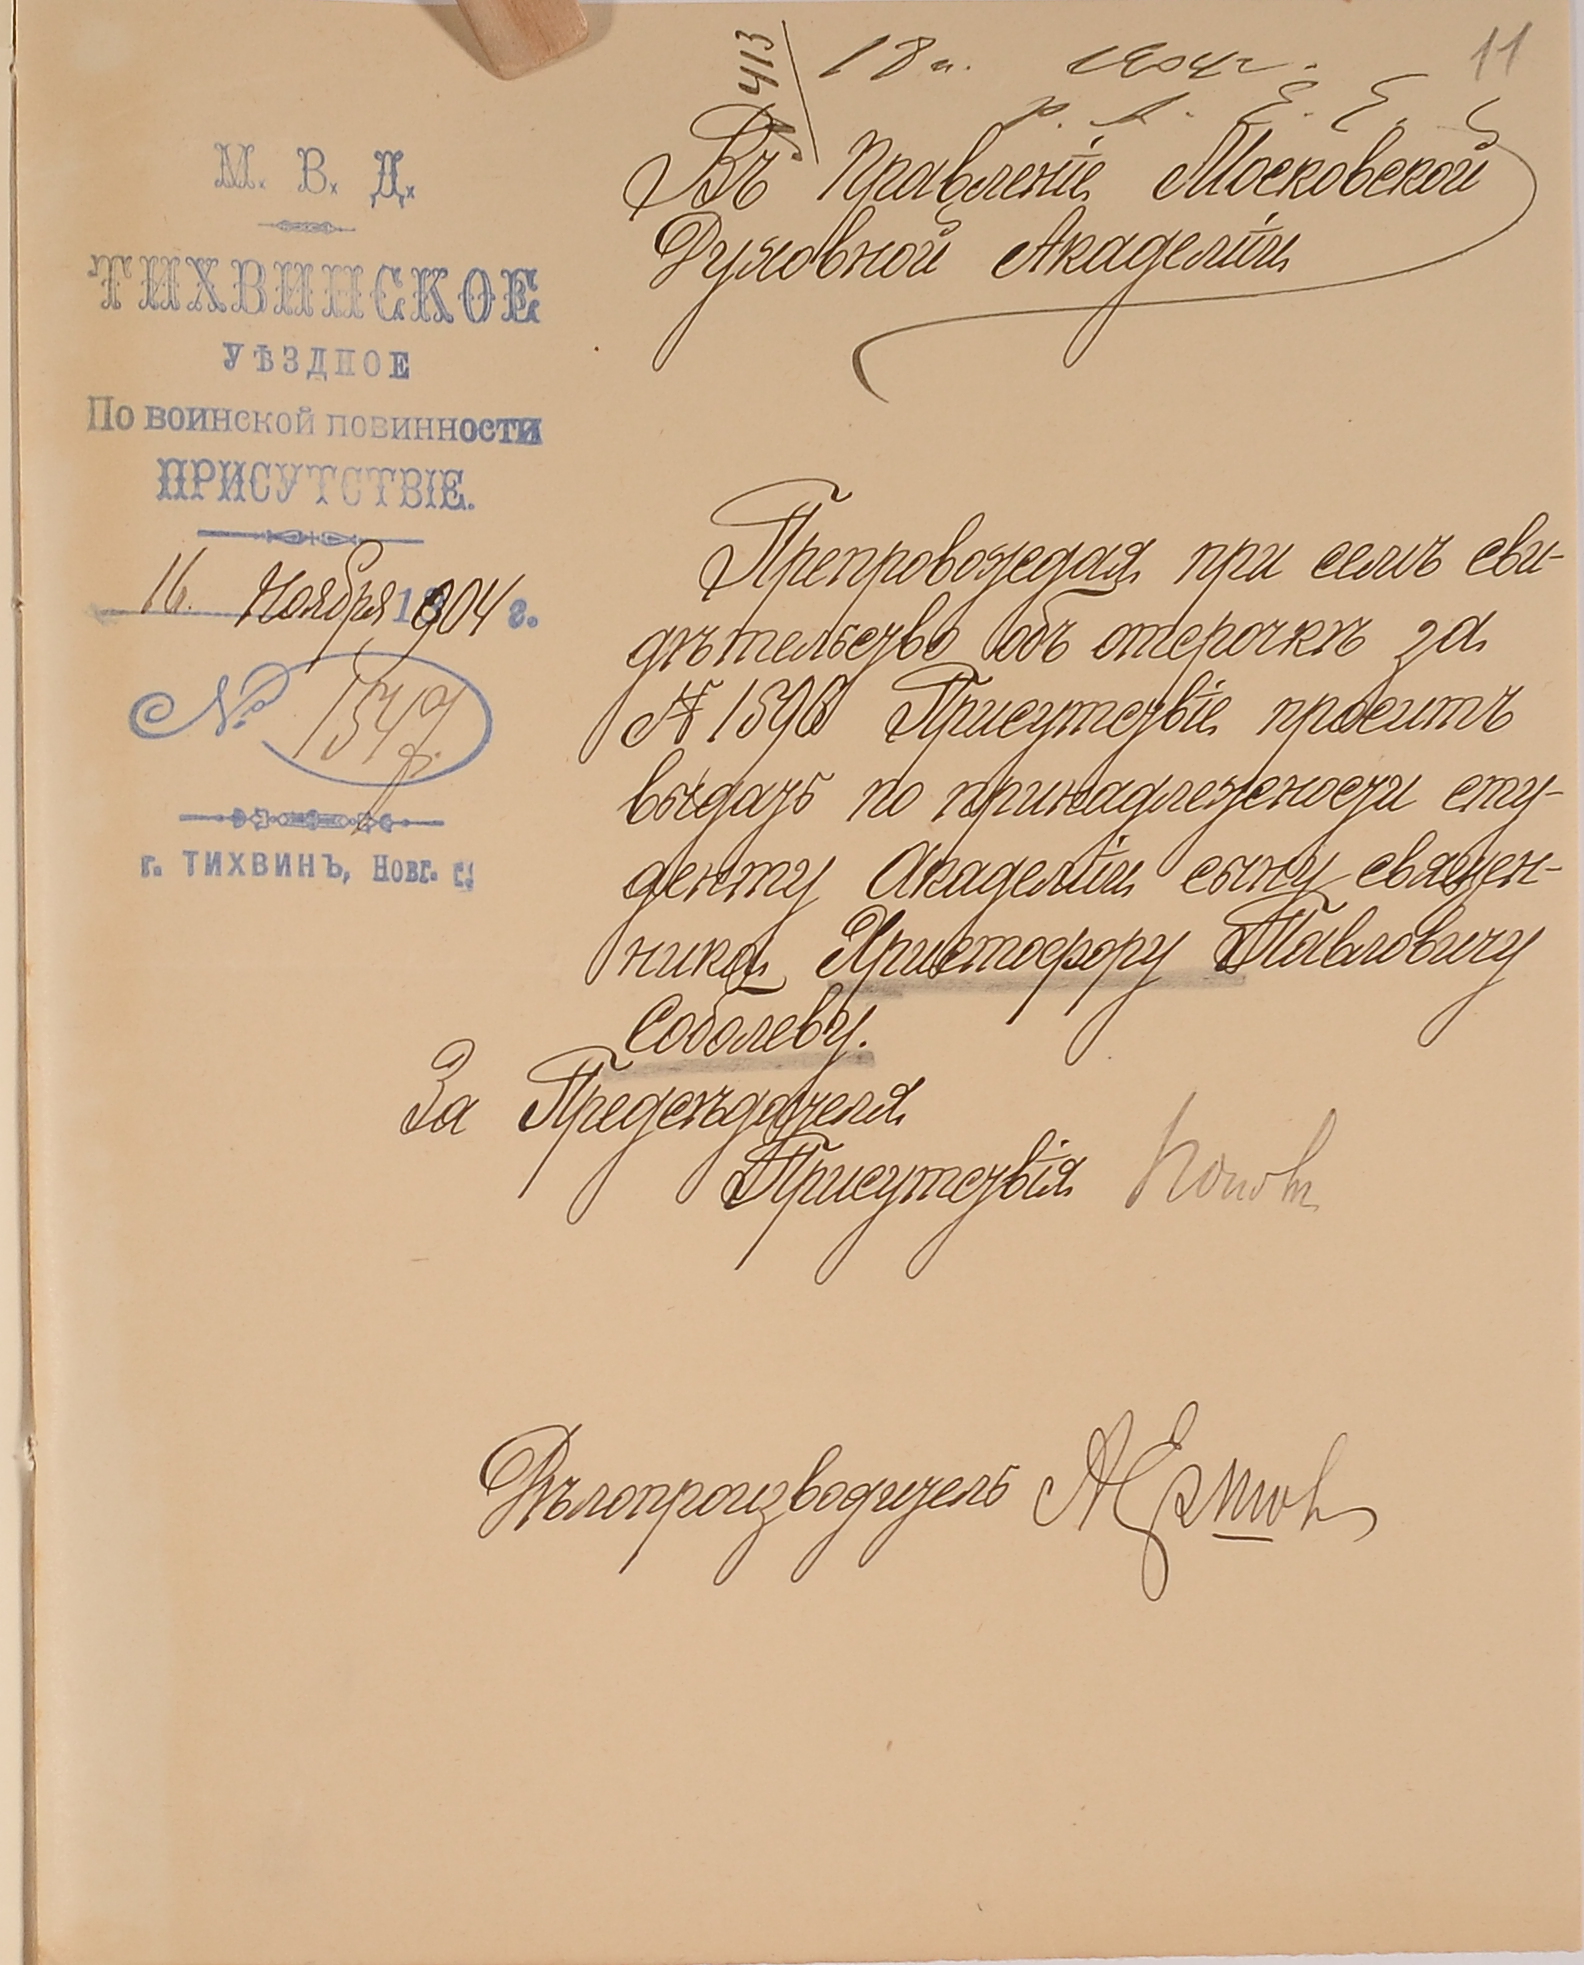 11
413
18 н. 1904 г.
М. В. Д.
ТИХВИНСКОЕ
УѢЗДНОЕ
По воинской повинности
ПРИСУТСТВІЕ.
16. Ноября 1904 г.
№ 1549
г. ТИХВИНЪ, Новг. г.
Въ Правленіе Московской
Духовной Академіи
Препровождая при семъ сви-
дѣтельство объ отсрочкѣ за
№ 1590 Присутствіе проситъ
выдать по принадлежности сту-
денту Академіи сыну священ-
ника Христофору Павловичу
Соболеву.
За Предсѣдателя
Присутствія
Дѣлопроизводитель